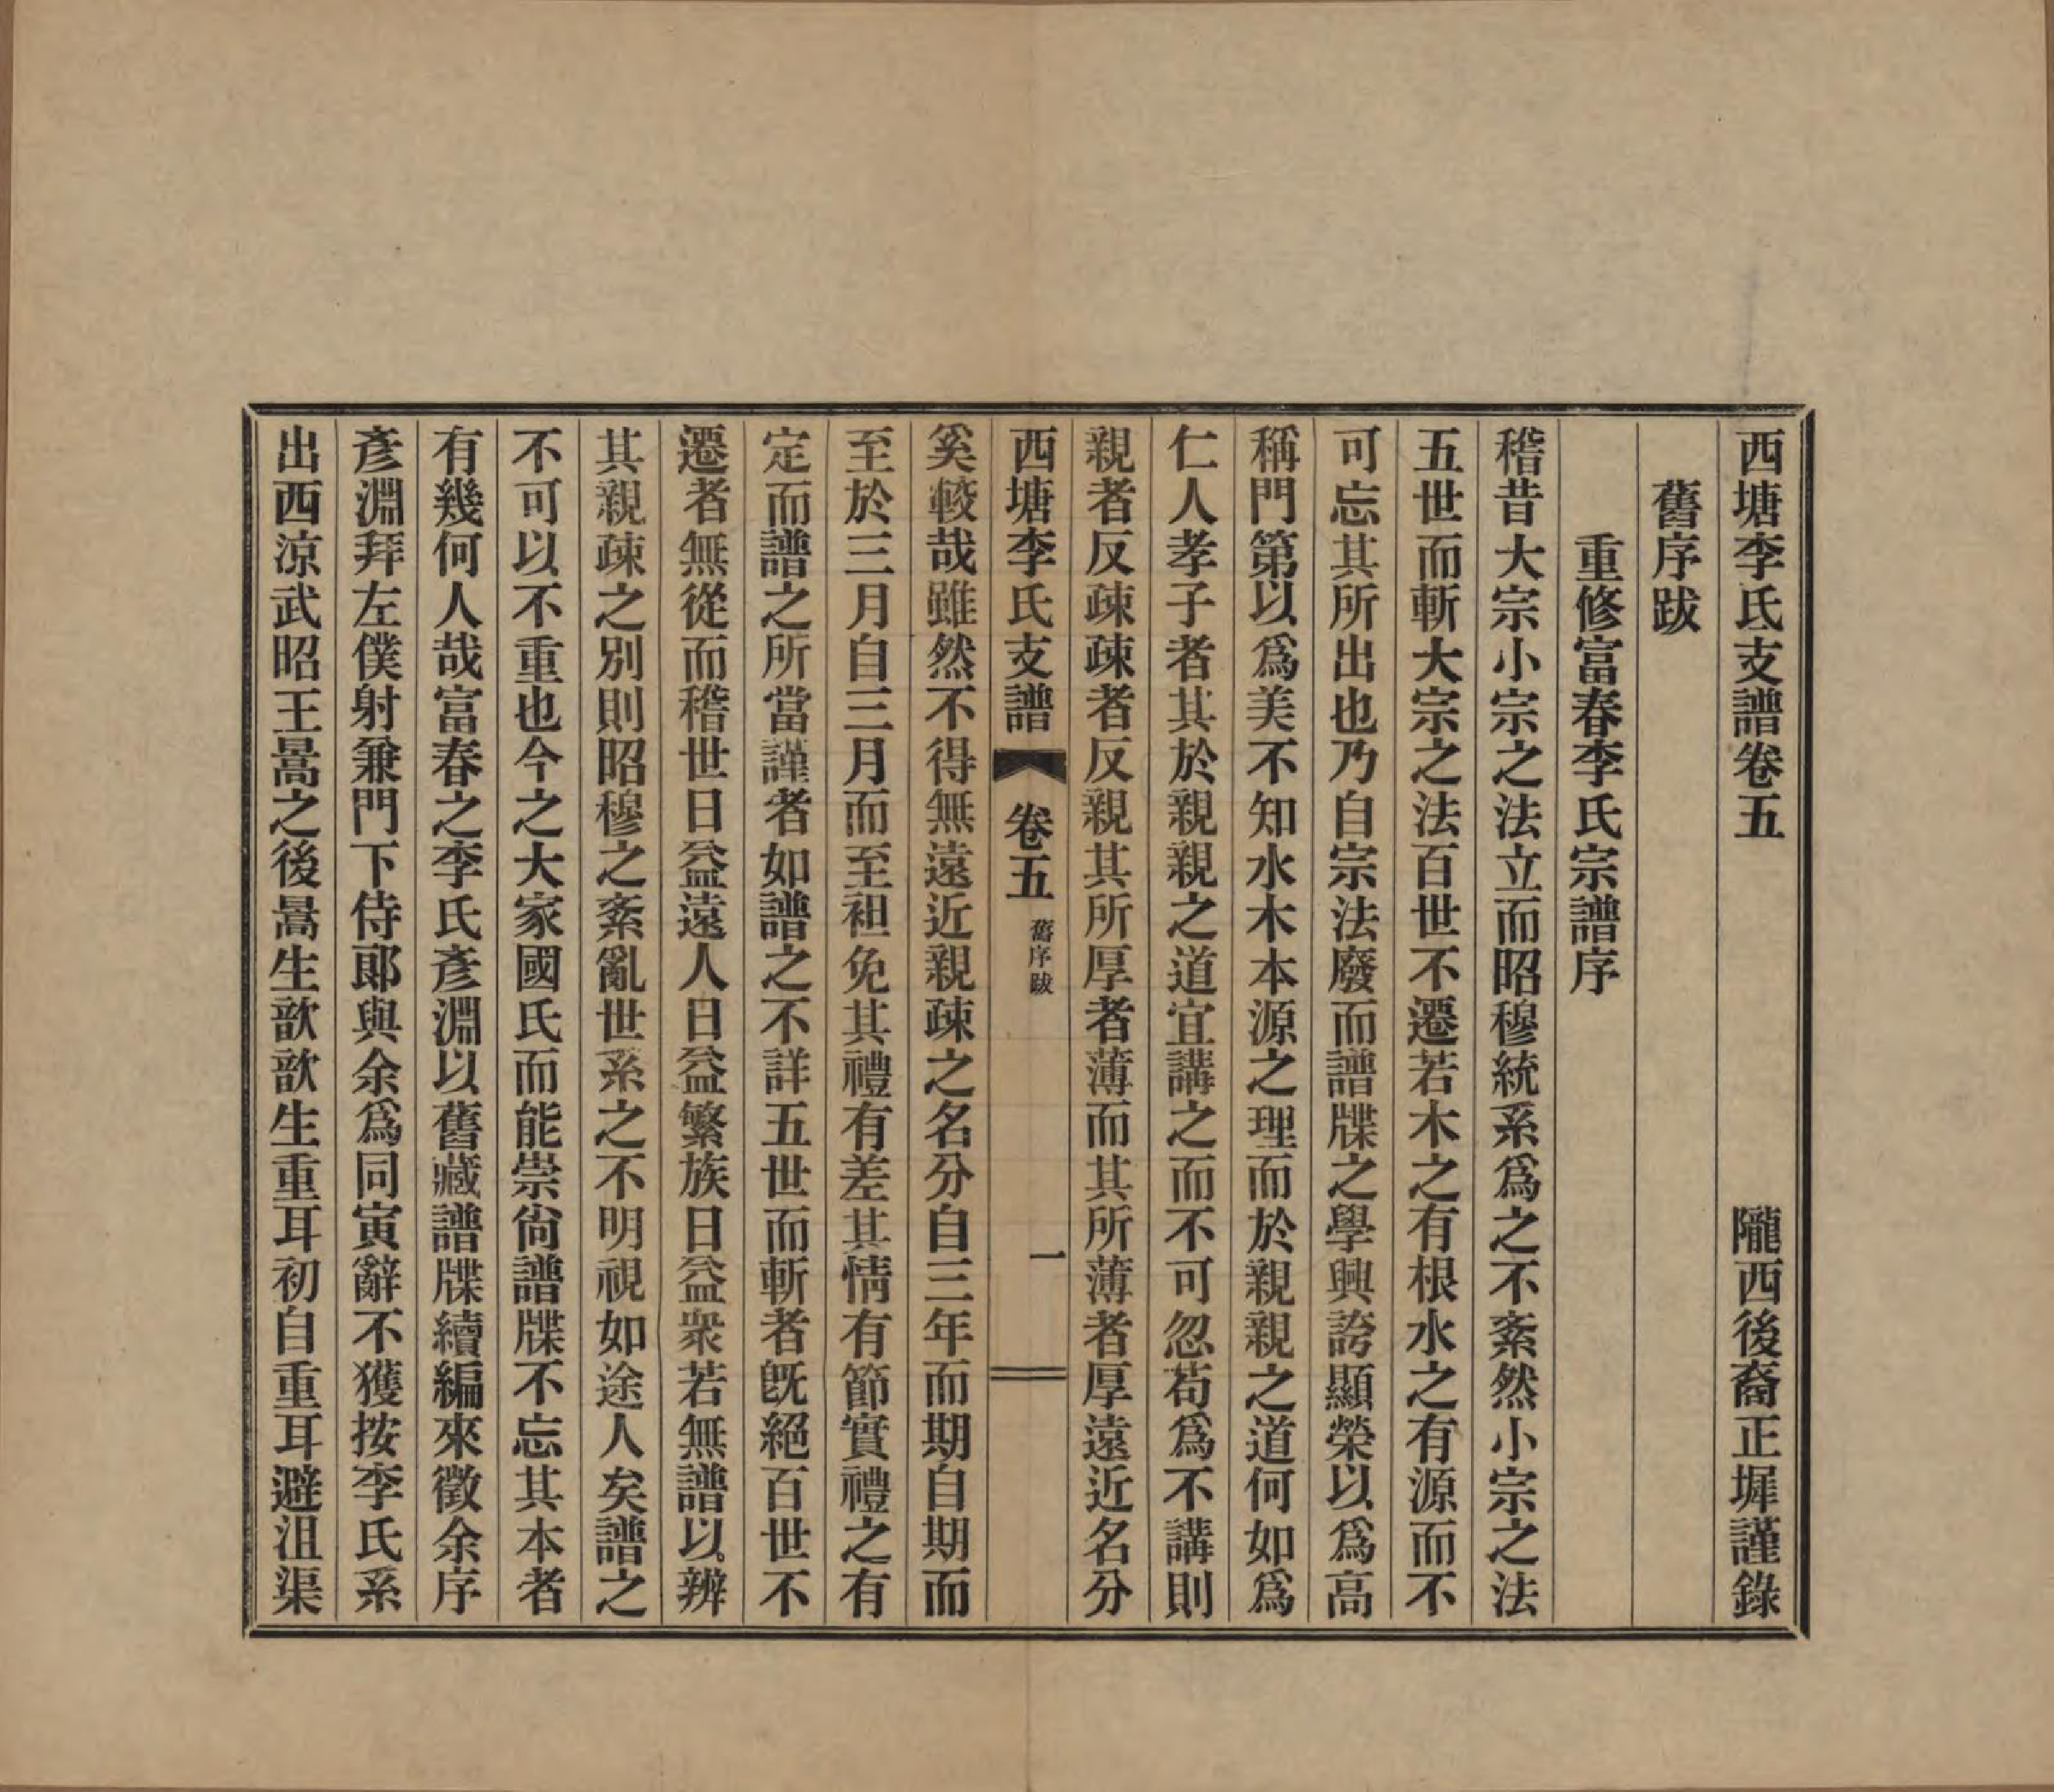 西塘李氏支譜卷五　隴西後裔正墀謹錄
舊序跋
重修富春李氏宗譜序
稽昔大宗小宗之法立而昭穆統系爲之不紊然小宗之法
五世而斬大宗之法百世不遷若木之有根水之有源而不
可忘其所出也乃自宗法廢而譜牒之學興誇顯榮以爲高
稱門第以爲美不知水木本源之理而於親親之道何如爲
仁人孝子者其於親親之道宜講之而不可忽苟爲不講則
親者反疎疎者反親其所厚者薄而其所薄者厚遠近名分
西塘李氏支譜　卷五　舊序跋　一
奚較哉雖然不得無遠近親疎之名分自三年而期自期而
至於三月自三月而至袒免其禮有差其情有節實禮之有
定而譜之所當謹者如譜之不詳五世而斬者旣絕百世不
遷者無從而稽世日益遠人日益繁族日益衆若無譜以辨
其親疎之別則昭穆之紊亂世系之不明視如途人矣譜之
不可以不重也今之大家國氏而能崇尙譜牒不忘其本者
有幾何人哉富春之李氏彥淵以舊藏譜牒續編來徵余序
彥淵拜左僕射兼門下侍郞與余爲同寅辭不獲按李氏系
出西涼武昭王暠之後暠生歆歆生重耳初自重耳避沮渠